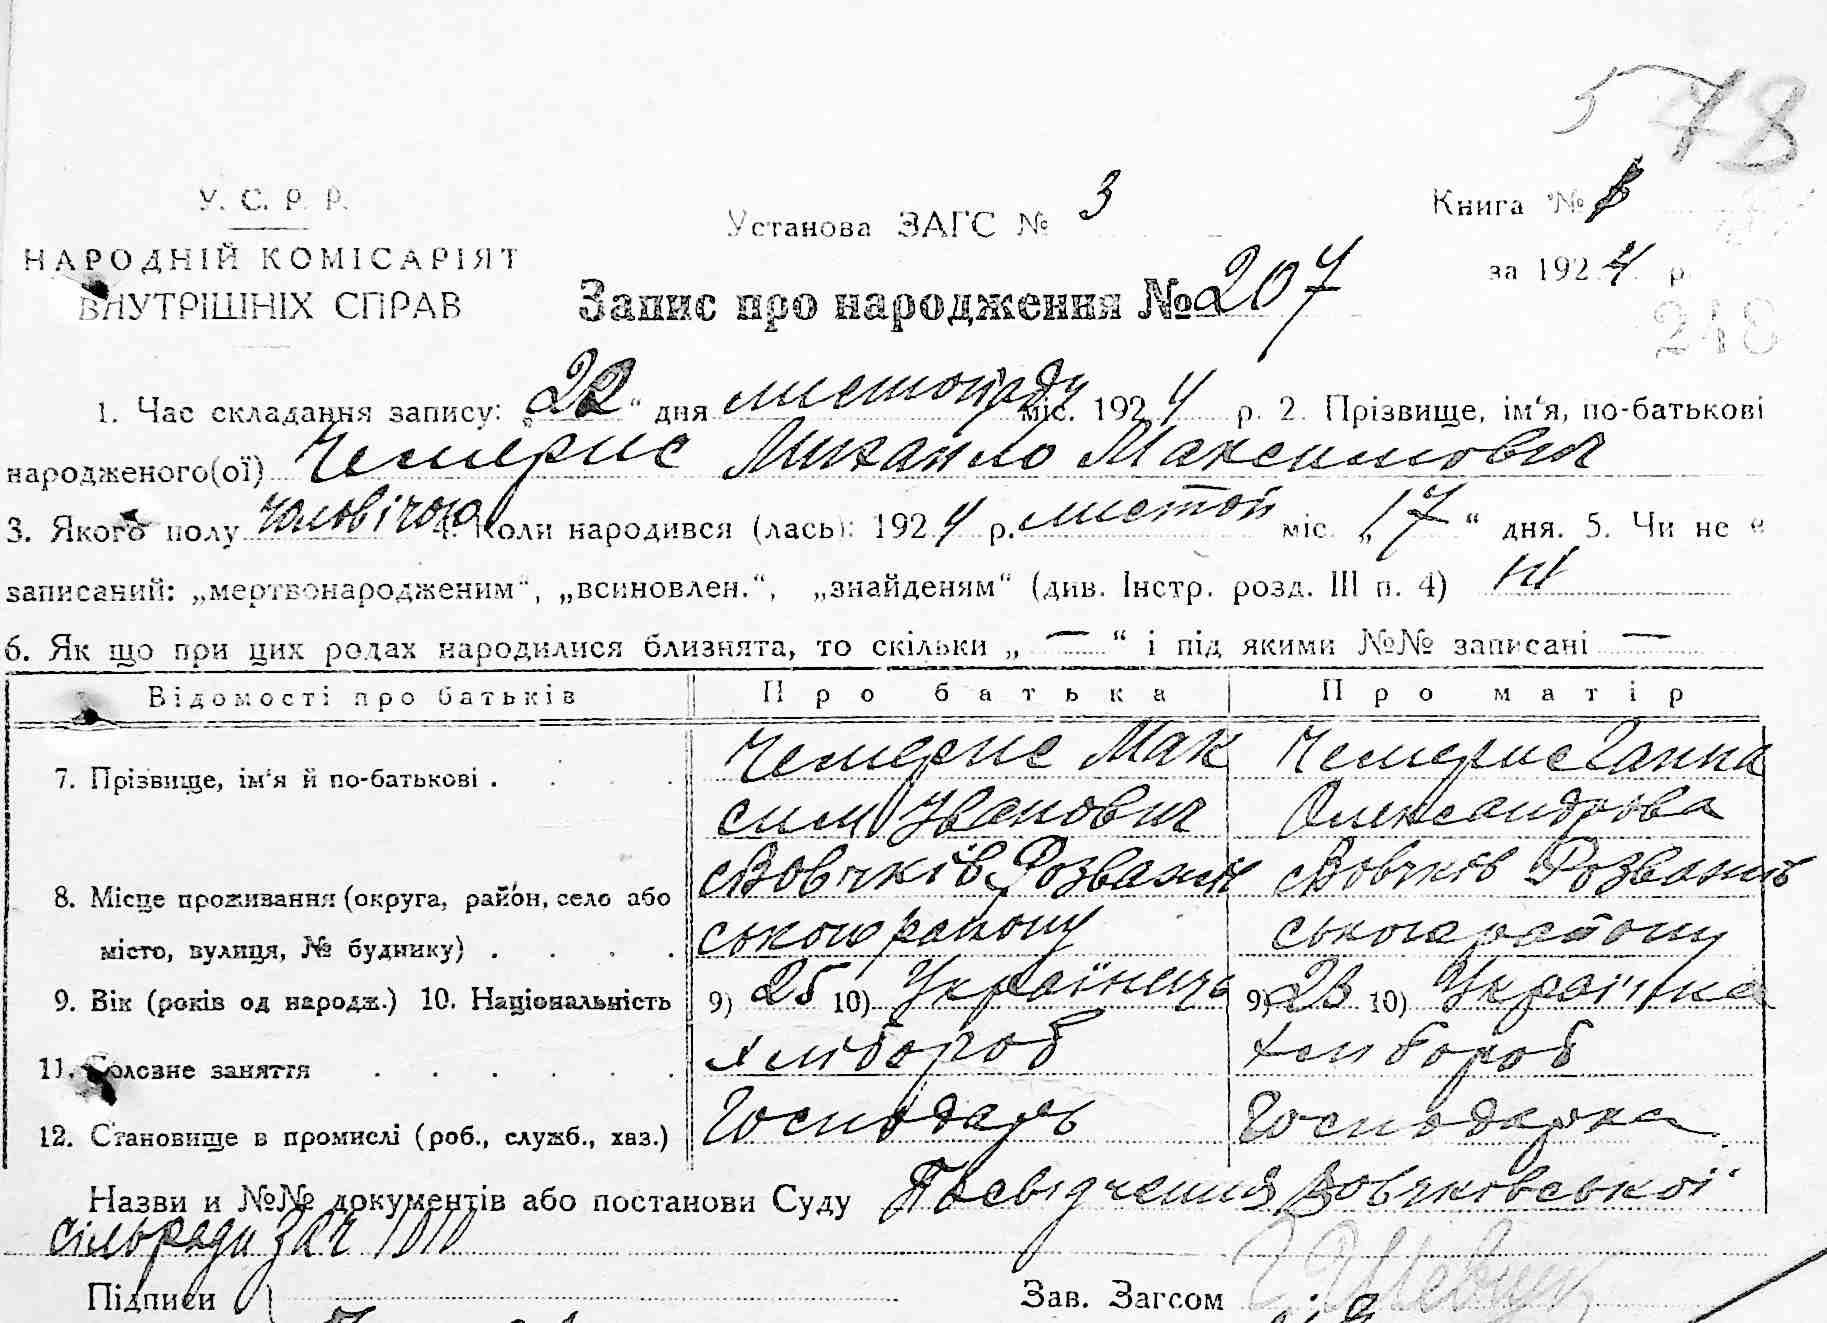 578
У. С. Р. Р.
НАРОДНІЙ КОМІСАРІЯТ
ВНУТРІШНІХ СПРАВ
Установа ЗАГС № 3
Книга №
за 1924 р
248
Запис про народження № 207
1. Час складання запису: „22“ дня листопаду міс. 1924 р. 2. Прізвище, ім‘я, по-батькові
народженого(ої) Чемерис Михайло Максимович
3. Якого полу чоловічого 4. Коли народився (лась): 1924 р. листоп міс. „17“ дня. 5. Чи не є
записаний: „мертвонародженим“, „всиновлен.“, „знайденям“ (див. Інстр. розд. III п. 4) ні
6. Як що при цих родах народилися близнята, то скільки „—“ і під якими №№ записані —
Відомості про батьків Про батька Про матір
7. Прізвище, ім‘я й по-батькові . . . . Чемерис Мак Чемерис Ганна
сим Іванович Олександрова
8. Місце проживання (округа, район, село або Вовчків Розважів Вовчків Розважів
місто, вулиця, № будинку) . . . . ського району ського району
9. Вік (років од народж.) 10. Національність 9) 25 10) Українець 9) 23 10) Українка
11. Головне заняття . . . . . . Хлібороб Хлібороб
12. Становище в промислі (роб., служб., хаз.) Господарь Господарка
Назви и №№ документів або постанови Суду Посвідчення Вовчковської
сільради за ч 1010
Підписи Зав. Загсом Шевчук